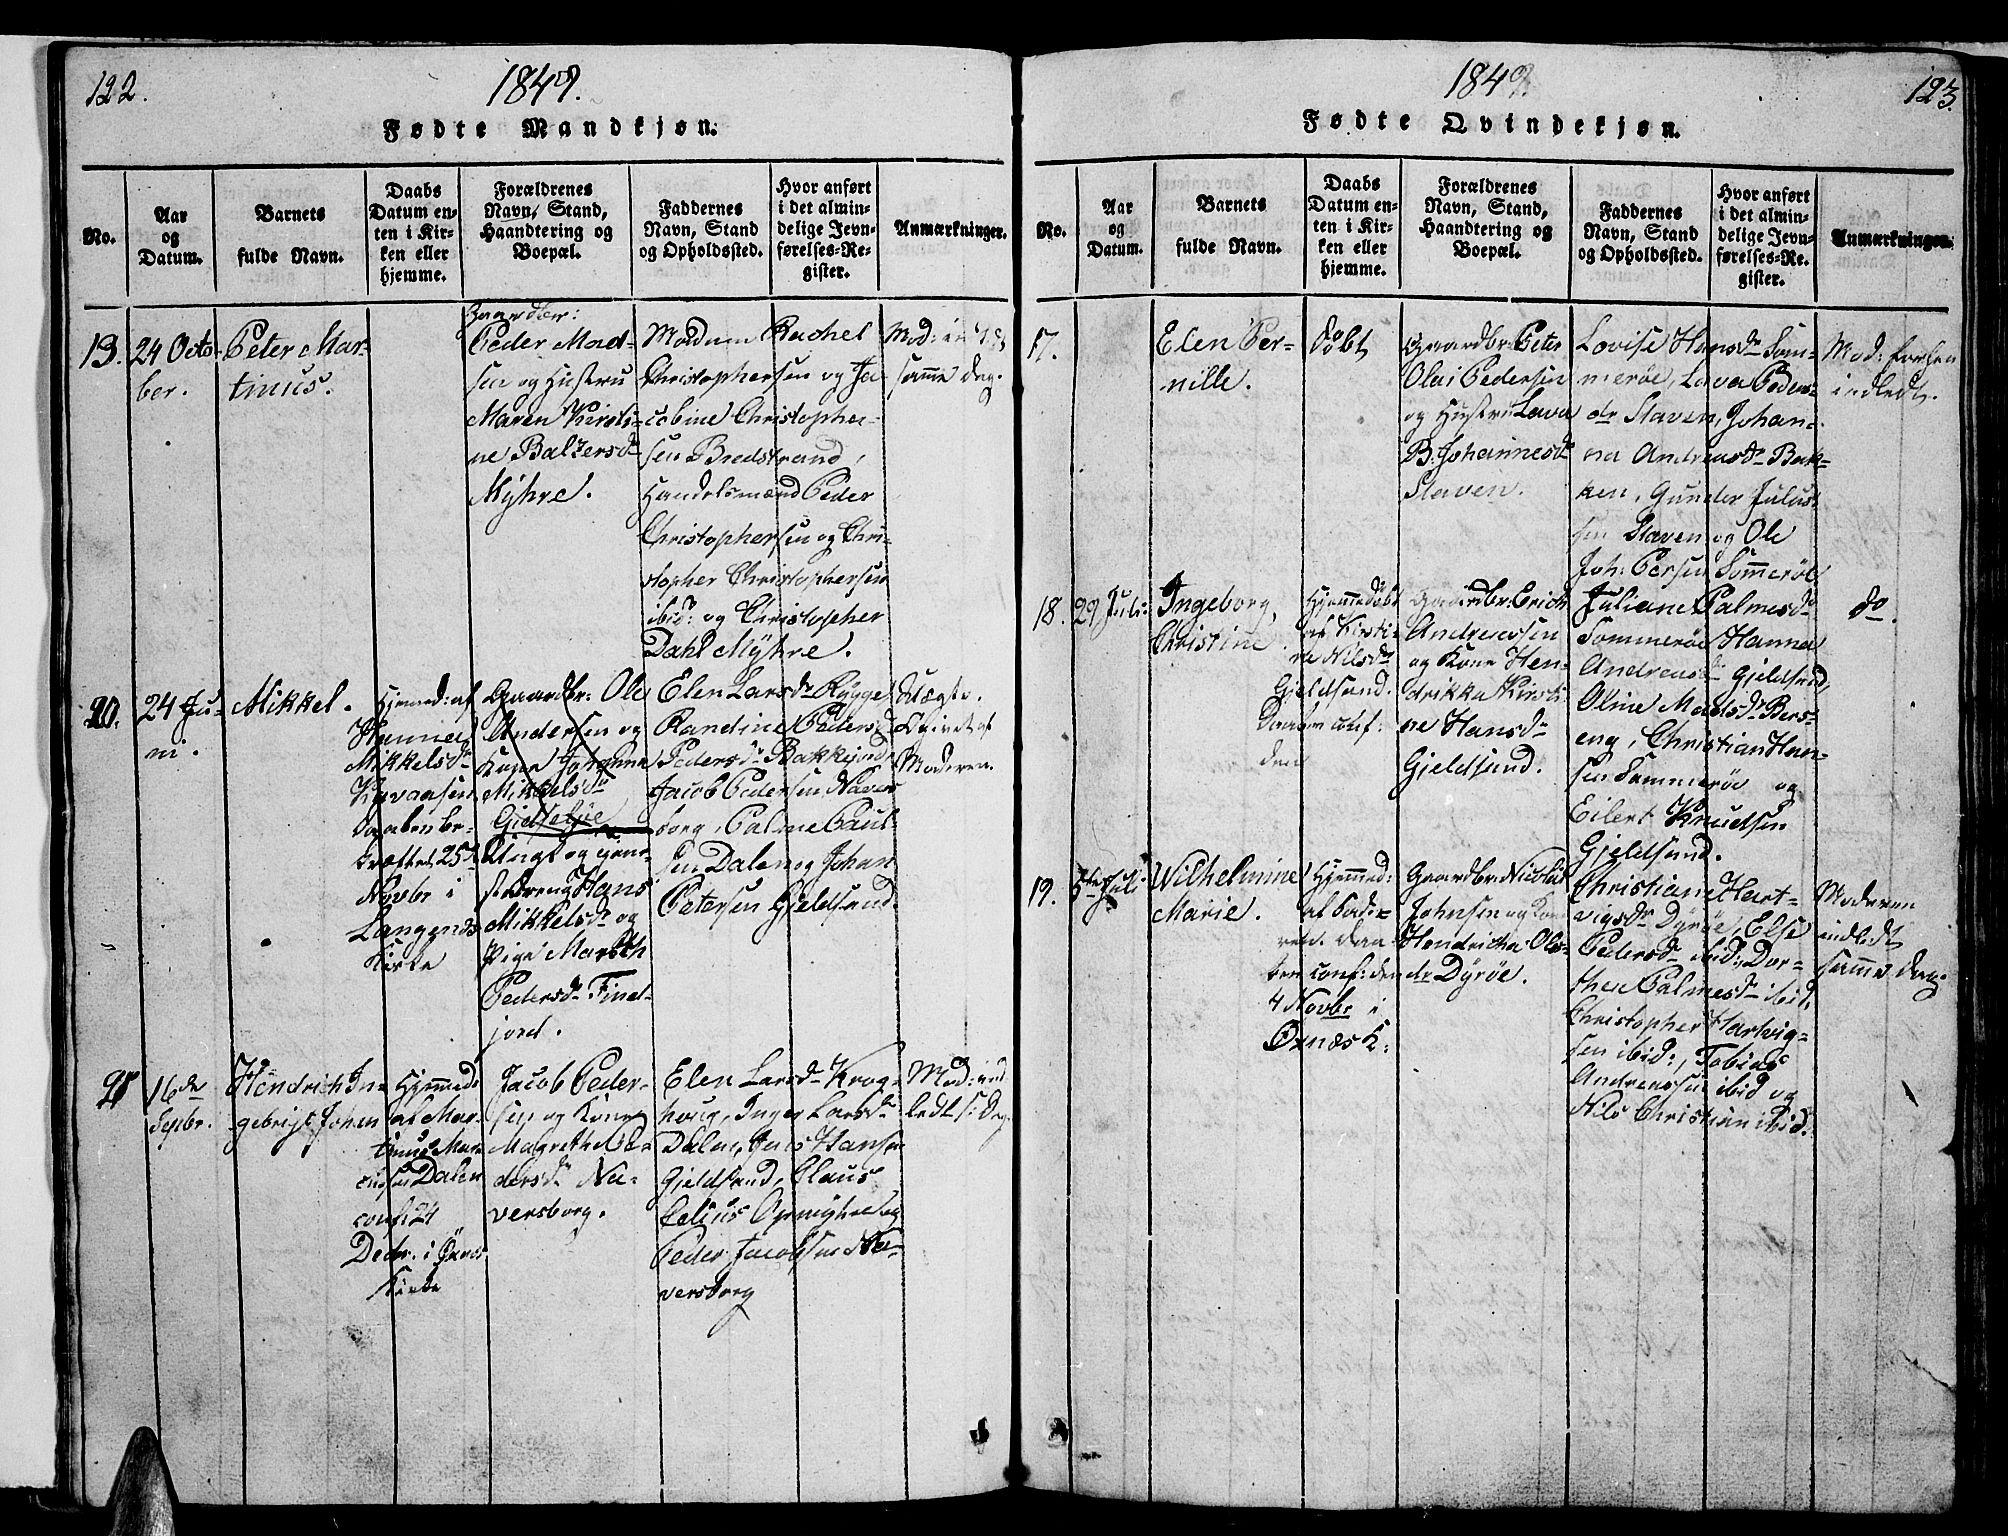 122.
1849.
Fødte Mandkjøn.
No.
Aar
og
Datum.
Barnets
fulde Navn.
Daabs
Datum en-
ten i Kir-
ken eller
hjemme.
Forældrenes
Navn, Stand,
Haandtering og
Boepæl.
Faddernes
Navn, Stand
og Opholdssted.
Hvor anført
i det almin-
delige Jevn-
førelses-Re-
gister.
Anmærkninger.
13.
24 Octo-
ber.
Peter Mar-
tinus.
Gaardbr:
Peder Mad-
sen og Hustru
Maren Kirsti-
ne Baltzersdr
Myhre.
Madam Rachel
Christophersen og Ja-
cobine Christopher-
sen Bredstrand,
Handelsmænd Peder
Christophersen og Chri-
stopher Christophersen
ibid: og Christopher
Dahl Myhre.
Mod: ind
samme dag.
20.
24 Ju-
ni.
Mikkel.
Hjemmed: af
Hanna
Mikkelsdr
Kavaasen
Daaben be-
kræftet 25
Novbr i
Langenes
Kirke
Gaardbr: Ole
Andersen og
Kone Johanna
Mikkelsdr
Ungk og
Hans
Mikkels og
Pige Mareth
Pedersdr Finel-
jord.
Elen Larsdr Rygge
Randine Pedersdr
Pedersdr Bakkejord
Jacob Pedersen Naver-
borg, Palme Paul-
sen Dalen og Johan
Petersen Gjeldsund
Uægte.
Opgivet af
Moderen.
21
16de
Septbr.
Hendrich In-
gebrigt Johan
Hjemmed:
af Mar-
tinus Mar-
Dalen
conf: 24
Decbr. i Øxnes
Kirke
Jacob Peder-
sen og Kone
Magrethe Pe-
dersdr Na-
versborg.
Elen Larsdr Krog-
houg, Inger Larsdr
Dalen, Jens Hansen
Gjeldsund, Claus
Celius Opmyhre og
Peder Jacobsen Na-
versborg
Mod: ind
ledt s: Dag
1849.
123.
Fødte Qvindekjøn.
No.
Aar
og
Datum.
Barnets
fulde Navn.
Daabs
Datum en-
ten i Kir-
ken eller
hjemme.
Forældrenes
Navn, Stand,
Haandtering og
Boepæl.
Faddernes
Navn, Stand
og Opholdssted.
Hvor anført
i det almin-
delige Jevn-
førelses-Re-
gister.
Anmærkninger.
17.
Elen Per-
nille.
døbt
Gaardbr: Peter
Olai Pedersen
og Hustru Lava
B: Johannesdr
Staven.
Lovise Hansdr Som-
merøe, Lava Peders-
dr Staven, Johan-
na Andreasdr Bak-
ken, Gunder Julius-
sen Staven og Ole
Joh: Persen Sommerøe
Mod: forhen
indledt.
18.
29 Juli
Ingeborg
Christine
Hjemmedøbt
af Kirsti-
ne Nilsdr
Gjeldsund.
Daaben conf:
den
Gaardbr: Erich
Andreassen
og Kone Hen-
drikka Kirsti-
ne Hansdr
Gjeldsund.
Juliane Palmesdr
Sommerøe Hanna
Andreasdr Gjeldsund,
Oline Madsdr Bers-
eng, Christian Han-
sen Sommerøe og
Eilert Knudsen
Gjeldsund.
do.
19.
5te Juli
Wilhelmine
Marie.
Hjemmed:
af Fade-
ren. Daa-
ben conf: den
4 Novbr i
Øxnæs K:
Gaardbr: Nicolai
Johnsen og Kone
Hendricha Ols-
dr Dyrøe.
Christiane Hart-
vigsdr Dyrøe, Else
Pedersdr ibid:, Dor-
thea Palmesdr ibid,
Christopher Hartvig-
sen ibid:, Tobias
Andreassen ibid og
Nils Christian ibid.
Moderen
indledt
samme dag.